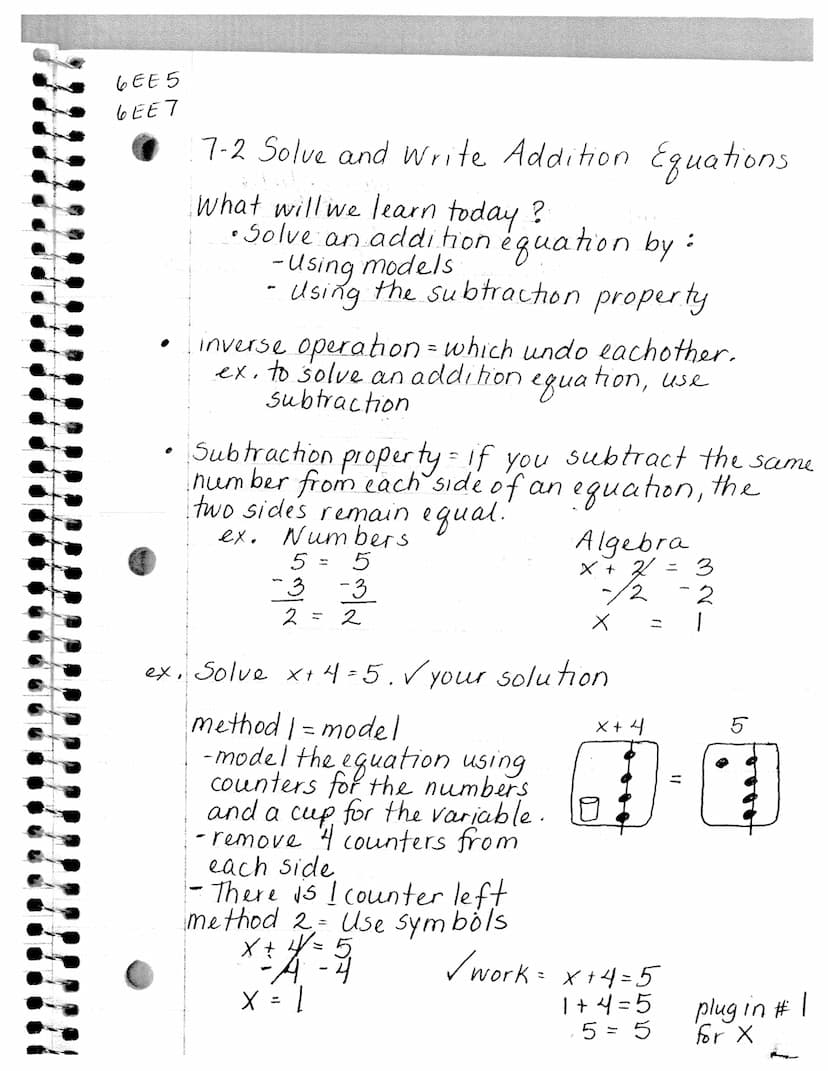 6EE5
6EE7
7-2 Solve and Write Addition Equations
What will we learn today?
• Solve an addition equation by:
- Using models
- Using the subtraction property
• inverse operation = which undo eachother.
ex. to solve an addition equation, use
subtraction
• Subtraction property = if you subtract the same
number from each side of an equation, the
two sides remain equal.
ex. Numbers Algebra
5 = 5 x + 2 = 3
-3 -3 -2 -2
2 = 2 x = 1
ex. Solve x+4=5. ✓ your solution
method 1 = model x+4 5
-model the equation using
counters for the numbers =
and a cup for the variable.
- remove 4 counters from
each side
- There is 1 counter left
method 2 = Use symbols
x + 4 = 5
-4 -4 ✓work = x+4=5
x = 1 1+4=5 plug in # 1
5 = 5 for x